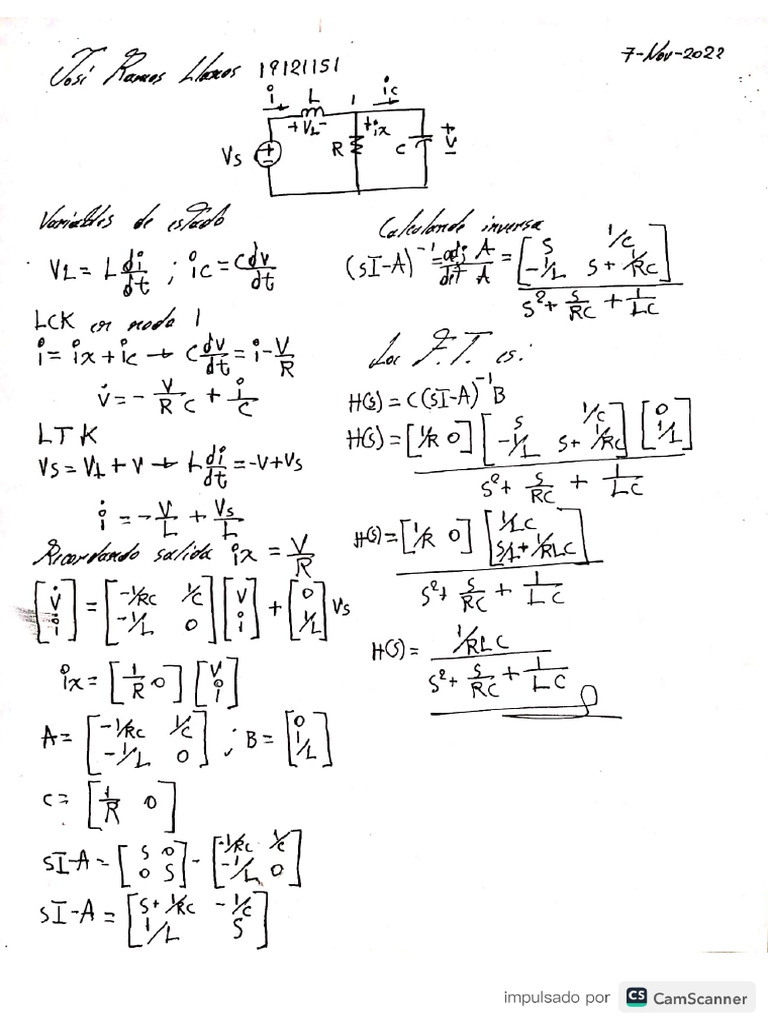 José Ramos Llamos 19121151
7-Nov-2022
i L 1 ic
+VL-
Vs + - R +ix C + V -
Variables de estado
VL = L di/dt ; ic = C dv/dt
LCK en nodo 1
i = ix + ic → C dv/dt = i - V/R
v̇ = - V/RC + i/C
LTK
Vs = VL + V → L di/dt = -V + Vs
i̇ = - V/L + Vs/L
Recordando salida ix = V/R
[v̇ i̇] = [-1/RC 1/C -1/L 0] [V i] + [0 1/L] Vs
ix = [1/R 0] [V i]
A = [-1/RC 1/C -1/L 0] ; B = [0 1/L]
C = [1/R 0]
SI-A = [S 0 0 S] - [-1/RC 1/C -1/L 0]
SI-A = [S+1/RC -1/C 1/L S]
Calculando inversa
(SI-A)⁻¹ = adj A / det A = [S 1/C -1/L S+1/RC] / S² + S/RC + 1/LC
Los F.T. es:
H(s) = C(SI-A)⁻¹B
H(s) = [1/R 0] [S 1/C -1/L S+1/RC] [0 1/L] / S² + S/RC + 1/LC
H(s) = [1/R 0] [1/LC S/L+1/RLC] / S² + S/RC + 1/LC
H(s) = 1/RLC / S² + S/RC + 1/LC
impulsado por CS CamScanner